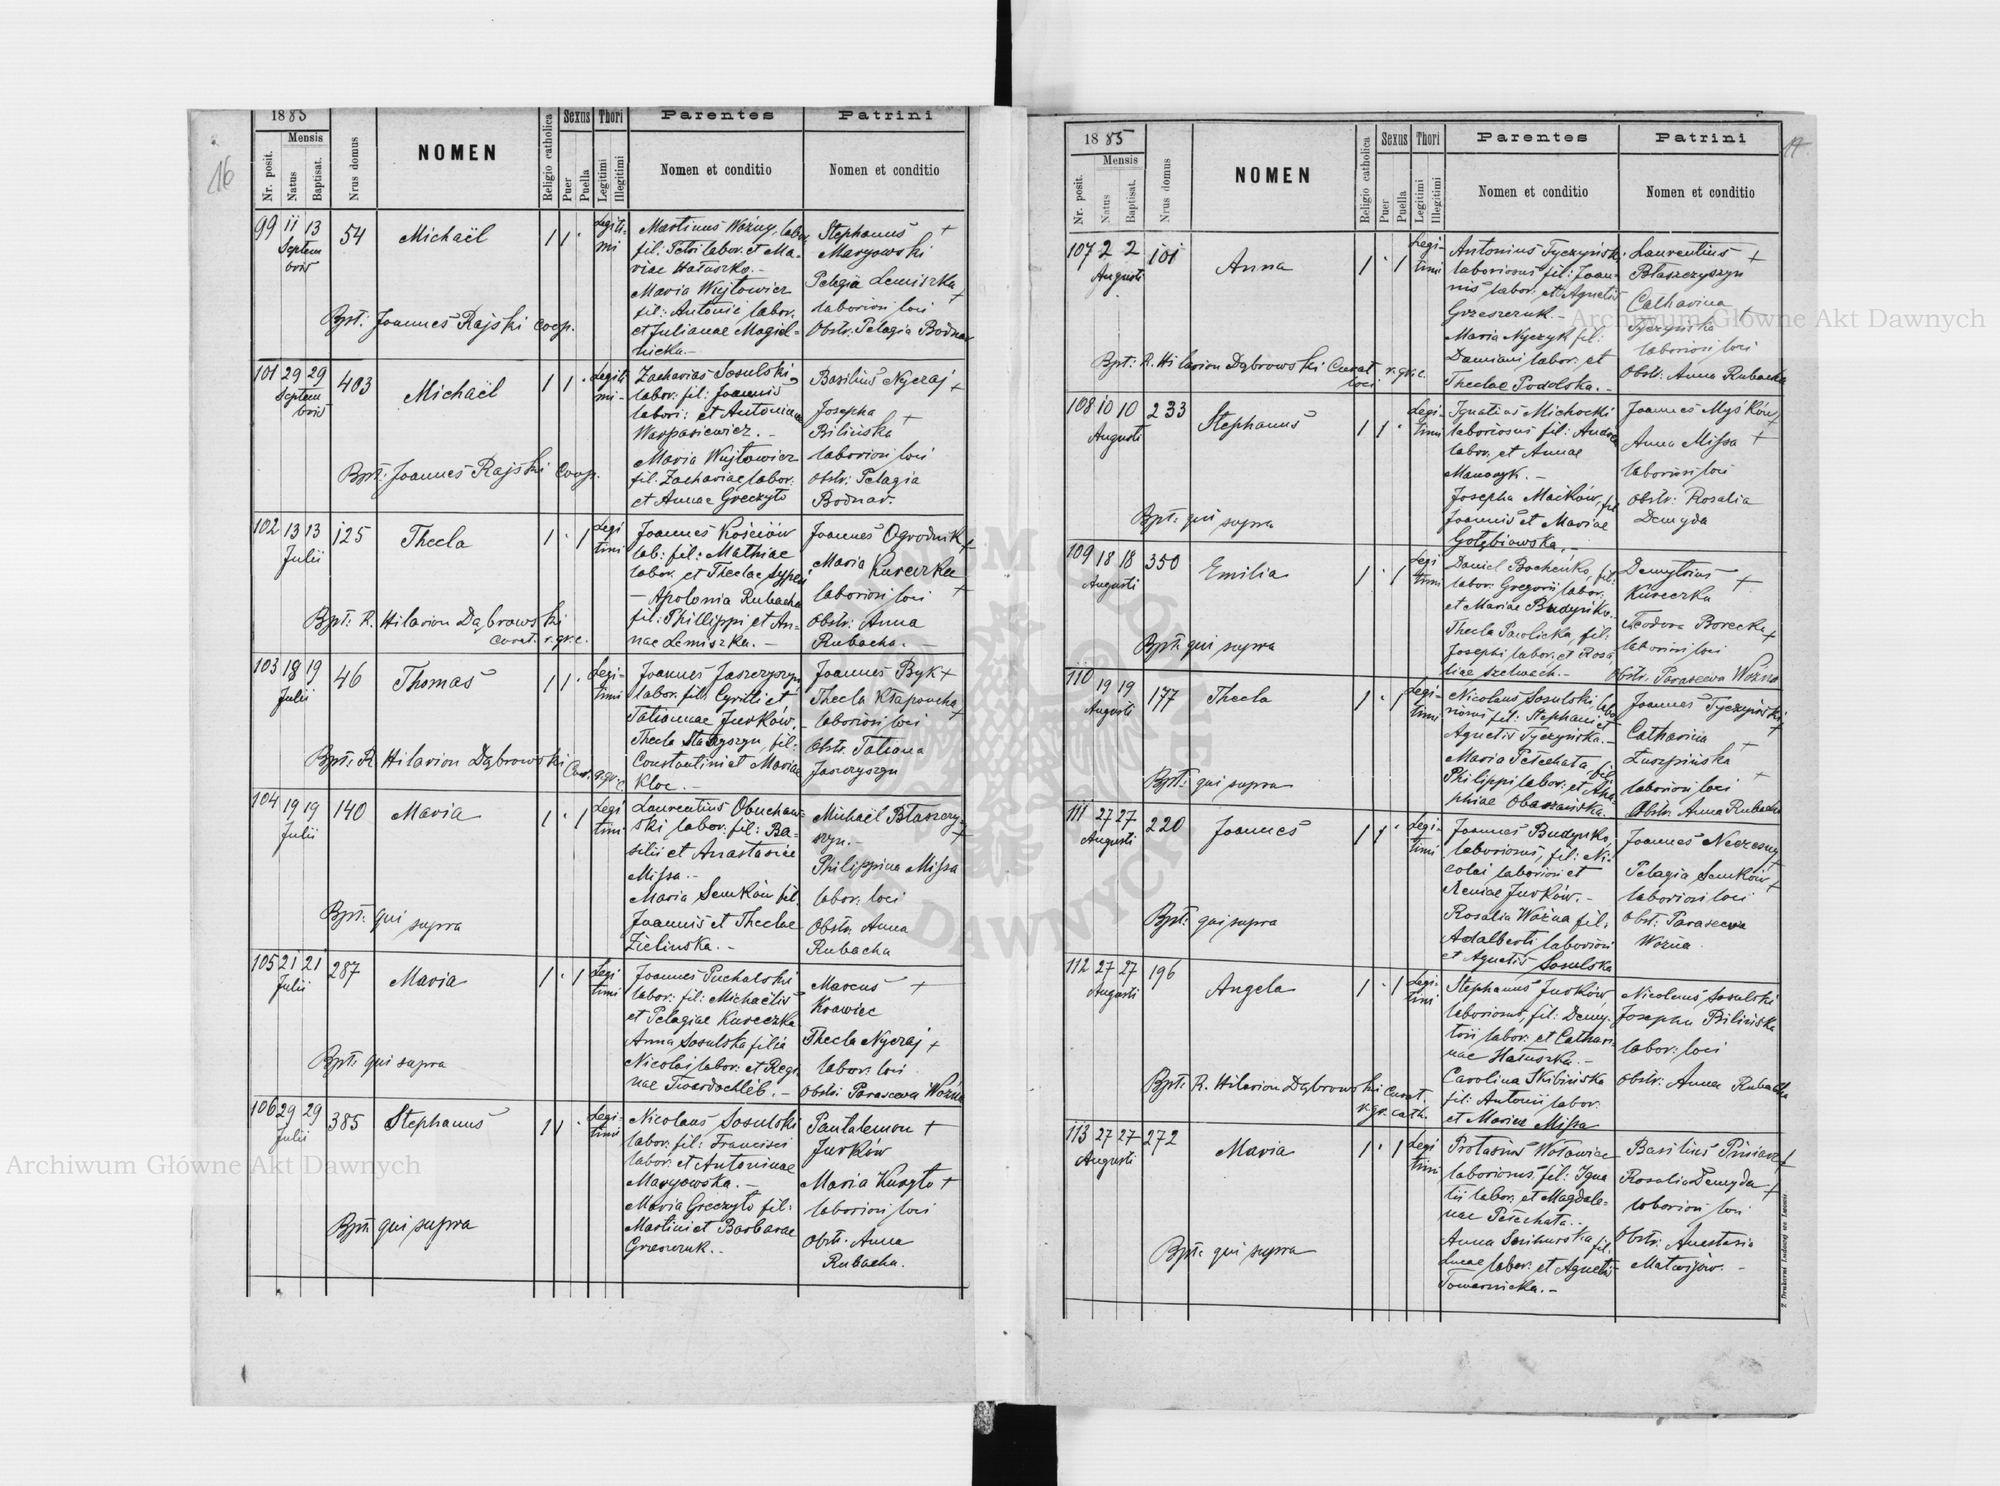 16
1885
Mensis
Nr. posit.
Natus
Baptisat.
Nrus domus
NOMEN
Religio catholica
Sexus
Puer
Puella
Thori
Legitimi
Illegitimi
Parentes
Nomen et conditio
Patrini
Nomen et conditio
99 11 13 54 Michaël 1 1 · Legiti-
Septem mi
bris
Martinus Woźny, labor.
fil: Petri labor. et Ma-
riae Hałuszko.-
Maria Wujtowicz
fil: Antonii labor.
et Julianae Magiel-
nicka.-
Stephanus +
Maryowski
Pelagia Lemiszka +
laboriosi loci
Obstr. Pelagia Bodnar
Bpt: Joannes Rajski Coop.
101 29 29 403 Michaël 1 1 · Legiti
Septem mi-
bris
Zacharias Sosulski
labor. fil: Joannis
labori: et Antoninae
Warpasiewicz.-
Maria Wujtowicz
fil: Zachariae labor.
et Annae Greczyło
Basilius Nyczaj +
Josepha +
Bilińska
laboriosi loci
Obstr. Pelagia
Bodnar.
Bpt: Joannes Rajski Coop.
102 13 13 125 Thecla 1 · 1 Legi
Julii timi
Joannes Kościów
lab: fil: Mathiae
labor. et Theclae
- Apolonia Rubacha
fil: Phillippi et An-
nae Lemiszka.-
Joannes Ogrodnik +
Maria Kureczka
laboriosi loci +
Obstr: Anna
Rubacha.-
Bpt: R. Hilarion Dąbrowski
Curat. r. gr. c.
103 18 19 46 Thomas 1 1 · Legi-
Julii timi
Joannes Jaszczyszyn
labor. fil: Cyrilli et
Tatiannae Jurków,-
Thecla fil:
Constantini et Mariae
Kloc.-
Joannes Byk +
Thecla Kłapoucha +
laboriosi loci
Obstr. Tatiana
Jaszczyszyn
Bpt: R Hilarion Dąbrowski Curat. r. gr. c
104 19 19 140 Maria 1 · 1 Legi
Julii timi
Laurentius Obuchow-
ski labor: fil: Ba-
silii et Anastasiae
Missa.-
Maria Semków fil.
Joannis et Theclae
Zielinska.-
Michaël Błaszczy-
szyn.- +
Philippina Missa
labor. loci
Obstr. Anna
Rubacha
Bpt: qui
supra
105 21 21 287 Maria 1 · 1 Legi
Julii timi
Joannes Puchalski
labor: fil: Michaëlis
et Pelagiae Kureczka
Anna Sosulska filia
Nicolai labor: et Regi
nae Twardochleb.-
Marcus +
Krawiec
Thecla Nyczaj +
labor. loci
Obstr: Parascewa Woźna
Bpt: qui supra
106 29 29 385 Stephanus 1 1 · Legi-
Julii timi
Nicolaus Sosulski
labor. fil: Francisci
labor. et Antoninae
Maryowska.-
Maria Greczyło fil:
Martini et Barbarae
Grzeszczuk.-
Pantalemon +
Jurków
Maria Kuryło +
laboriosi loci
Obstr. Anna
Rubacha.
Bpt: qui supra
17.
1885
Mensis
Nr. posit.
Natus
Baptisat.
Nrus domus
NOMEN
Religio catholica
Sexus
Puer
Puella
Thori
Legitimi
Illegitimi
Parentes
Nomen et conditio
Patrini
Nomen et conditio
107 2 2 101 Anna 1 · 1 Legi-
Augusti timi
Antonius Tyczyński
laboriosus fil: Joan-
nis labor. et Agnetis
Grzeszczuk.-
Maria Nyczyk fil:
Damiani labor. et
Theclae Podolska.-
Laurentius +
Błaszczyszyn
Catharina +
Tyczyńska
laboriosi loci
Obstr: Anna Rubacha
Bpt: R. Hilarion Dąbrowski Curat r. gr. c.
loci
108 10 10 233 Stephanus 1 1 · Legi-
Augusti timi
Ignatius Michocki
laboriosus fil: Andrea
labor. et Annae
Manczyk.-
Josepha Maików, fil
Joannis et Mariae
Gołębiowska.
Joannes Myśków +
Anna Missa +
laboriosi loci
Obstr: Rosalia
Demyda
Bpt: qui supra
109 18 18 350 Emilia 1 · 1 Legi
Augusti timi
Daniel Bochenko, fil:
labor. Gregorii labor.
et Mariae Budynko.
Thecla Pawlicka, fil:
Josephi labor. et Rosa
liae Szelwach.-
Demytrius +
Kureczka
Teodora Borecka +
laboriosi loci
Obstr. Parascewa Woźna
Bpt: qui supra
110 19 19 177 Thecla 1 · 1 Legi-
Augusti timi
Nicolaus Sosulski, labo
riosus fil: Stephani et
Agnetis Tyczyńska.-
Maria Petechata fil:
Philippi labor. et Aga-
phiae Obaszańska.-
Joannes Tyczyński +
Catharina +
Zuszpińska +
laboriosi loci
Obstr. Anna Rubacha
Bpt: qui supra
111 27 27 220 Joannes 1 1 · Legi-
Augusti timi
Joannes Budynko,
laboriosus, fil: Ni-
colai laboriosi et
Xeniae Jurków.-
Rosalia Woźna fil:
Adalberti laboriosi
et Agnetis Sosulska
Joannes Neczesny +
Pelagia Semków +
laboriosi loci
Obst: Parascewa
Woźna.
Bpt: qui supra
112 27 27 196 Angela 1 · 1 Legi-
Augusti timi
Stephanus Jurków
laboriosus, fil: Demy-
trii labor. et Cathari
nae Hałuszka.-
Carolina Skibińska
fil: Antonii labor.
et Mariae Missa
Nicolaus Sosulski
Josepha Bilińska
labor: loci
Obstr: Anna Rubacha
Bpt: R. Hilarion Dąbrowski Curat.
r. gr. cath.
113 27 27 272 Maria 1 · 1 Legi
Augusti timi
Protasius Wołowiec
laboriosus, fil: Igna
tii labor. et Magdale-
nae Petechata..
Anna fil.
Lucae labor. et Agnetis
Towarnicka.-
Basilius +
Rosalia Demyda +
laboriosi loci
Obstr: Anastasia
Matwijów.-
Bpt: qui supra
Z Drukarni Ludowej we Lwowie
Archiwum Główne Akt Dawnych
Archiwum Główne Akt Dawnych